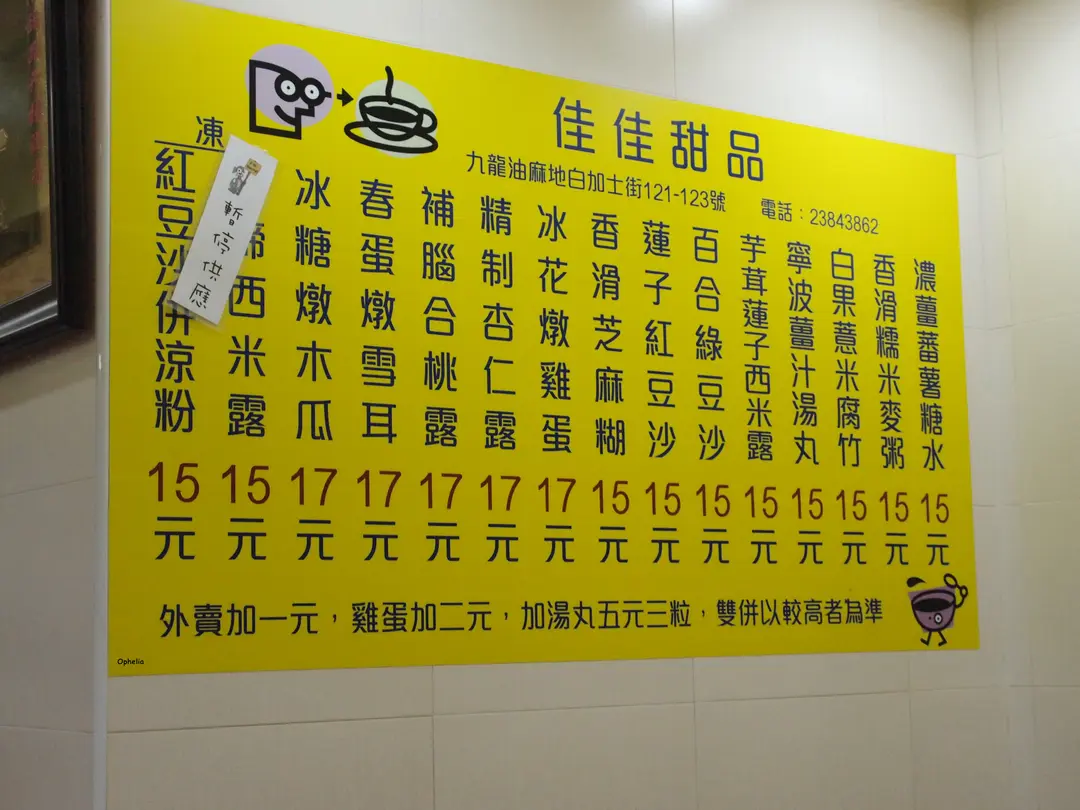 佳佳甜品
九龍油麻地白加士街121-123號 電話：23843862
濃薑蕃薯糖水 15元
香滑糯米麥粥 15元
白果薏米腐竹 15元
寧波薑汁湯丸 15元
芋茸蓮子西米露 15元
百合綠豆沙 15元
蓮子紅豆沙 15元
香滑芝麻糊 15元
冰花燉雞蛋 17元
精制杏仁露 17元
補腦合桃露 17元
春蛋燉雪耳 17元
冰糖燉木瓜 17元
凍
西米露 15元
暫停供應
紅豆沙併涼粉 15元
外賣加一元，雞蛋加二元，加湯丸五元三粒，雙併以較高者為準
Ophelia